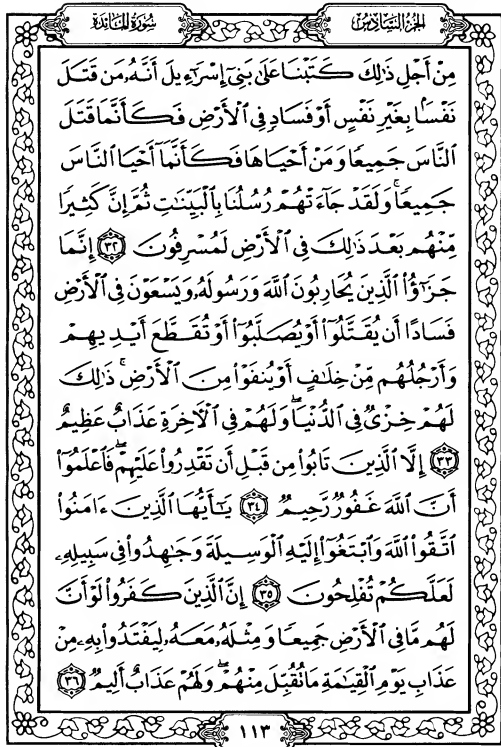 سُورَةُ المَائدة
الجزء السادس
مِنْ أَجْلِ ذَٰلِكَ كَتَبْنَا عَلَىٰ بَنِىٓ إِسْرَٰٓءِيلَ أَنَّهُۥ مَن قَتَلَ
نَفْسًۢا بِغَيْرِ نَفْسٍ أَوْ فَسَادٍ فِى ٱلْأَرْضِ فَكَأَنَّمَا قَتَلَ
ٱلنَّاسَ جَمِيعًا وَمَنْ أَحْيَاهَا فَكَأَنَّمَآ أَحْيَا ٱلنَّاسَ
جَمِيعًا ۚ وَلَقَدْ جَآءَتْهُمْ رُسُلُنَا بِٱلْبَيِّنَٰتِ ثُمَّ إِنَّ كَثِيرًا
مِّنْهُم بَعْدَ ذَٰلِكَ فِى ٱلْأَرْضِ لَمُسْرِفُونَ ٣٢ إِنَّمَا
جَزَٰٓؤُا۟ ٱلَّذِينَ يُحَارِبُونَ ٱللَّهَ وَرَسُولَهُۥ وَيَسْعَوْنَ فِى ٱلْأَرْضِ
فَسَادًا أَن يُقَتَّلُوٓا۟ أَوْ يُصَلَّبُوٓا۟ أَوْ تُقَطَّعَ أَيْدِيهِمْ
وَأَرْجُلُهُم مِّنْ خِلَٰفٍ أَوْ يُنفَوْا۟ مِنَ ٱلْأَرْضِ ۚ ذَٰلِكَ
لَهُمْ خِزْىٌ فِى ٱلدُّنْيَا ۖ وَلَهُمْ فِى ٱلْأَخِرَةِ عَذَابٌ عَظِيمٌ
٣٣ إِلَّا ٱلَّذِينَ تَابُوا۟ مِن قَبْلِ أَن تَقْدِرُوا۟ عَلَيْهِمْ ۖ فَٱعْلَمُوٓا۟
أَنَّ ٱللَّهَ غَفُورٌ رَّحِيمٌ ٣٤ يَٰٓأَيُّهَا ٱلَّذِينَ ءَامَنُوا۟
ٱتَّقُوا۟ ٱللَّهَ وَٱبْتَغُوٓا۟ إِلَيْهِ ٱلْوَسِيلَةَ وَجَٰهِدُوا۟ فِى سَبِيلِهِۦ
لَعَلَّكُمْ تُفْلِحُونَ ٣٥ إِنَّ ٱلَّذِينَ كَفَرُوا۟ لَوْ أَنَّ
لَهُم مَّا فِى ٱلْأَرْضِ جَمِيعًا وَمِثْلَهُۥ مَعَهُۥ لِيَفْتَدُوا۟ بِهِۦ مِنْ
عَذَابِ يَوْمِ ٱلْقِيَٰمَةِ مَا تُقُبِّلَ مِنْهُمْ ۖ وَلَهُمْ عَذَابٌ أَلِيمٌ ٣٦
١١٣